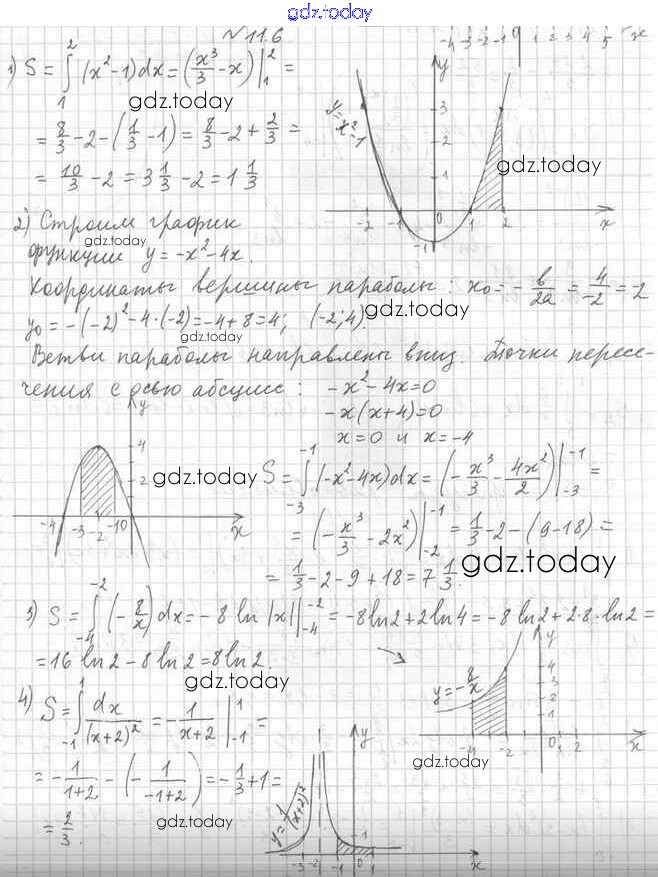 gdz.today
№ 11.6
1) S = ∫₁² (x² - 1) dx = (x³/3 - x) |₁² =
gdz.today
= 8/3 - 2 - (1/3 - 1) = 8/3 - 2 + 2/3 =
= 10/3 - 2 = 3 1/3 - 2 = 1 1/3
-4 -3 -2 -1 0 1 2 3 4 5 x
y
y = x² - 1
3
2
1
gdz.today
-2 -1 0 1 2 x
-1
2) Строим график
gdz.today
функции y = -x² - 4x.
Координаты вершины параболы: x₀ = - b/2a = 4/-2 = -2
gdz.today
y₀ = -(-2)² - 4·(-2) = -4 + 8 = 4; (-2; 4).
gdz.today
Ветви параболы направлены вниз. Точки пересе-
чения с осью абсцисс: -x² - 4x = 0
-x(x + 4) = 0
x = 0 и x = -4
y
4
2
-4 -3 -2 -1 0 x
gdz.today
S = ∫₋₃⁻¹ (-x² - 4x) dx = (- x³/3 - 4x²/2) |₋₃⁻¹ =
= (- x³/3 - 2x²) |₋₂⁻¹ = 1/3 - 2 - (9 - 18) =
gdz.today
= 1/3 - 2 - 9 + 18 = 7 1/3.
3) S = ∫₋₄⁻² (- 8/x) dx = -8 ln |x| |₋₄⁻² = -8 ln 2 + 2 ln 4 = -8 ln 2 + 2·8·ln 2 =
= 16 ln 2 - 8 ln 2 = 8 ln 2.
gdz.today
y
y = - 8/x
4
3
2
-4 -2 1 2 x
gdz.today
4) S = ∫₋₁¹ dx/(x+2)² = - 1/(x+2) |₋₁¹ =
= - 1/(1+2) - (- 1/(-1+2)) = - 1/3 + 1 =
= 2/3.
gdz.today
y
y = 1/(x+2)²
1
-3 -2 -1 1 x